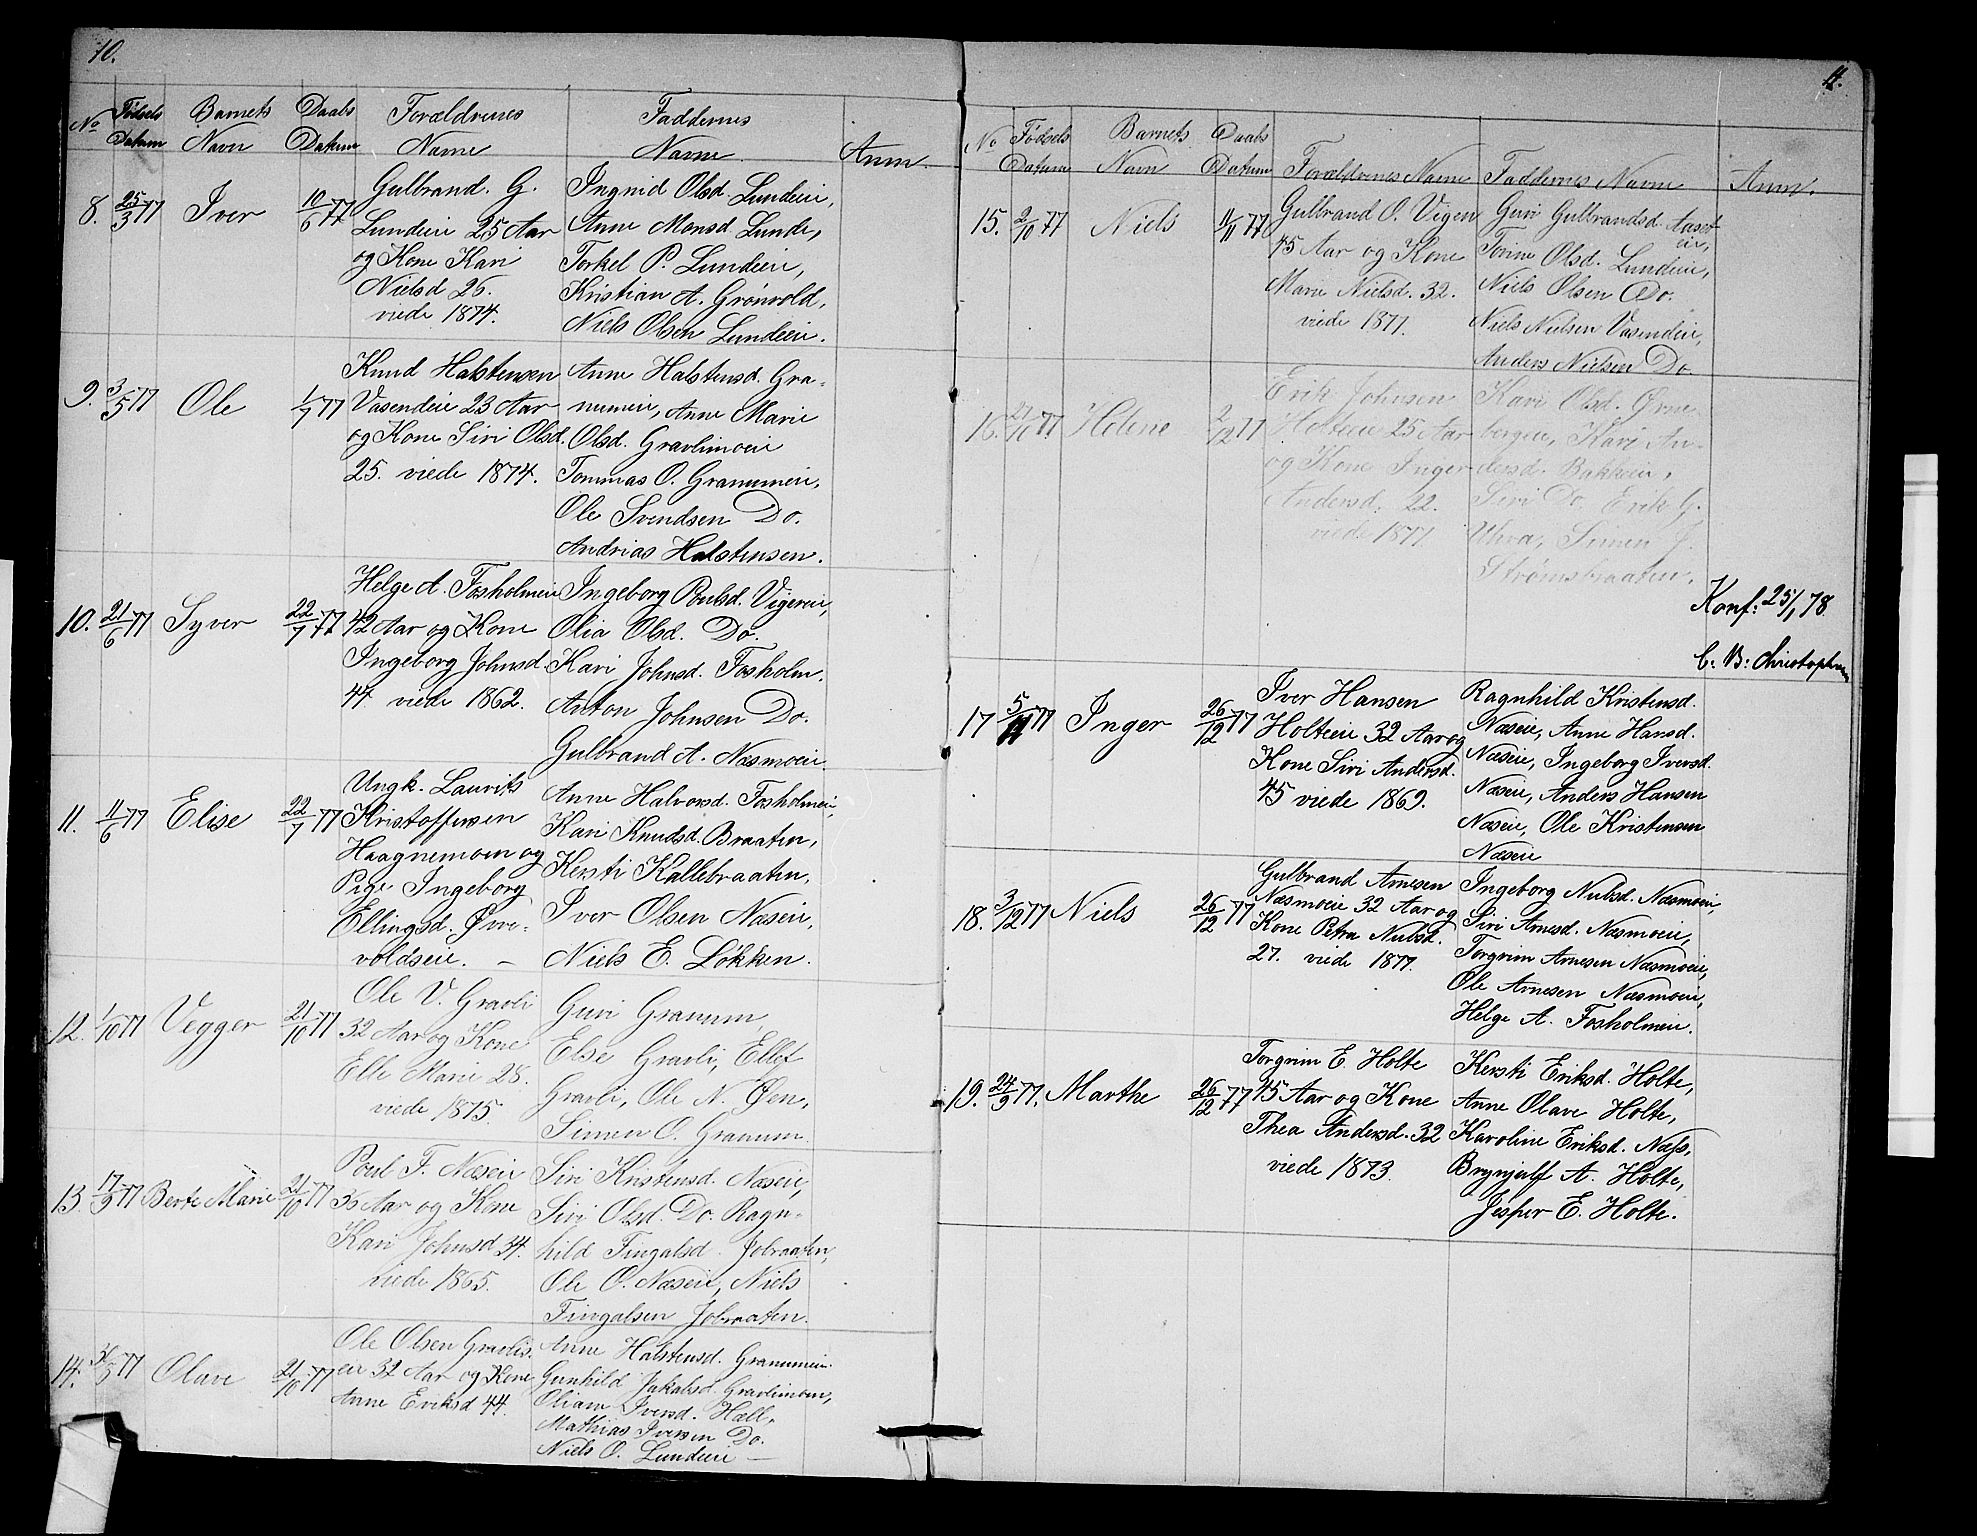 10.
No Fødsels Datum Barnets Navn Daabs Datum Forældrenes Navne Faddernes Navne Anm.
8. 25/3 77 Iver 10/6 77
Gulbrand. G.
Lundeie 25 Aar
og Kone Kari
Nielsd 26.
viede 1874.
Ingrid Olsd Lundeie,
Anne Monsd. Lunde,
Torkel P. Lundeie,
Kristian A. Grönvold,
Niels Olsen Lundeie.
9. 3/5 77 Ole 1/7 77
Knud Halstensen
Vasendeie 23 Aar
og Kone Siri Olsd.
25. viede 1874.
Anne Halstensd. Gra-
numeie, Anne Marie
Olsd. Gravlimoeie
Tommas O. Granumeie,
Ole Svendsen Do.
Andrias Halstensen.
10. 21/6 77 Syver 22/7 77
Helge A. Fosholmeie
42 Aar og Kone
Ingeborg Johnsd.
44 viede 1862.
Ingeborg Poulsd. Vigereie,
Olia Olsd. Do.
Kari Johnsd. Fosholm.
Anton Johnsen Do.
Gulbrand A. Næsmoeie.
11. 11/6 77 Elise 22/7 77
Ungk. Laurits
Kristoffersen
Haagnemoen og
Pige Ingeborg
Ellingsd. Øve-
voldseie. -
Anne Halvorsd. Fosholmeie,
Kari Knudsd. Braaten,
Kersti Kallebraaten,
Iver Olsen Næseie,
Niels E. Løkken.
12. 1/10 77 Vegger 21/10 77
Ole V. Gravli
32 Aar og Kone
Elle Marie 28.
viede 1875.
Guri Granum
Else Gravli, Ellef
Gravli, Ole N. Øen,
Simen O. Granum.
13. 17/9 77 Berte Marie 21/10 77
Poul F. Næseie
36 Aar og Kone
Kari Johnsd 34.
viede 1865.
Siri Kristensd. Næseie,
Siri Olsd. Do. Ragn-
hild Fingalsd. Jobraaten,
Ole O. Næseie, Niels
Fingalsen Jobraaten.
14. 31/5 77 Olave 21/10 77
Ole Olsen Gravlis-
eie 32 Aar og Kone
Anne Eriksd 44.
Anne Halstensd. Granumeie.
Gunhild Jakobsd. Gravlimoen,
Oliane Iversd. Hæll.
Mathias Iversen Do.
Niels O. Lundeie -
11.
No Fødsels Datum Barnets Navn Daabs Datum Forældrenes Navne Faddernes Navne Anm.
15. 2/10 77 Niels 11/11 77
Gulbrand O. Vigen
45 Aar og Kone
Marie Nielsd. 32.
viede 1877.
Guri Gulbrandsd. Aaset-
eie,
Torine Olsd. Lundeie,
Niels Olsen Do.
Niels Nielsen Vasendeie,
Anders Nielsen Do.
16. 21/10 77. Helene 2/12 77
Erik Johnsen
Holteeie 25 Aar
og Kone Inger
Andersd. 22.
viede 1877
Kari Olsd. Ørne-
bergeie, Kari An-
dersd. Bakkeie,
Siri Do. Erik G.
Ulvra, Simen J.
Strømsbraaten.
Konf: 25/1 78.
C. B: Christophersen
17 5/11 77 Inger 26/12 77
Iver Hansen
Holteeie 32 Aar og
Kone Siri Andersd.
45 viede 1869.
Ragnhild Kristensd.
Næseie, Anne Hansd.
Næseie, Ingeborg Iversd.
Næseie, Anders Hansen
Næseie, Ole Kristensen
Næseie
18. 3/12 77 Niels 26/12 77
Gulbrand Arnesen
Næsmoeie 32 Aar og
Kone Petra Nielsd.
27. viede 1877.
Ingeborg Nielsd. Næsmoeie,
Siri Arnesd. Næsmoeie,
Torgrim Arnesen Næsmoeie,
Ole Arnesen Næsmoeie,
Helge A. Fosholmeie.
19. 24/9 77. Marthe 26/12 77
Torgrim E. Holte
45 Aar og Kone
Thea Andersd. 32
viede 1873.
Kersti Eriksd. Holte,
Anne Olave Holte,
Karoline Eriksd. Næss,
Brynjulf A. Holte,
Jesper E. Holte.